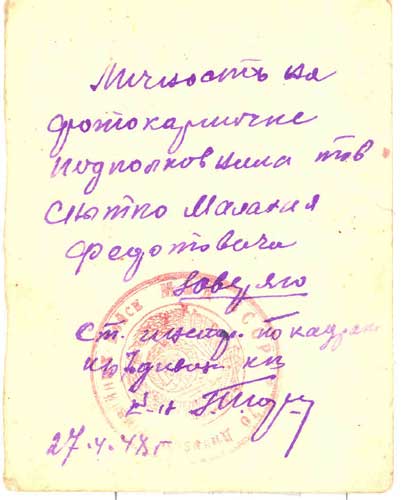 Личность на
фотокарточке
подполковника тов
Сытко Малахия
Федотовича
заверяю
Ст. инспр. по кадрам
к-н
27.4.48 г